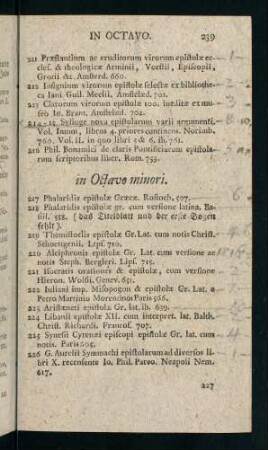 IN OCTAVO. 239
211 Præstantium ac eruditorum virorum epistolæ ec-
clef. & theologicæ Arminii, Vorstii, Episcopii,
Grotii &c. Amsterd. 660.
212 Insignium virorum epistolæ selectæ ex bibliothe-
ca Iani Guil. Meelii. Amstelæd. 701.
213 Clarorum virorum epistolæ 100. ineditæ ex mu-
seo Ioh. Brant. Amstelæd. 702.
214-15 Sylloge nova epistolarum varii argumenti.
Vol. Imum, libros 4. priores continens. Norimb.
760. Vol. II. in quo libri 5 & 6. ib. 761.
216 Phil. Bonamici de claris Pontificiarum epistola-
rum scriptoribus liber. Rom. 753.
in Octavo minori.
217 Phalaridis epistolæ Græcæ. Rostoch, 597.
218 Phalaridis epistolæ gr. cum versione latina. Ba-
sil. 558. (das Titelblatt und der erste Bogen
fehlt)
219 Themistoclis epistolæ Gr. Lat. cum notis Christ.
Schoettgenii. Lips. 710.
220 Alciphronis epistolæ Gr. Lat. cum versione ac
notis Steph. Bergleri. Lips. 715.
221 Isocratis orationes & epistolæ, cum versione
Hieron. Wolfii. Genev. 651.
222 Iuliani imp. Misopogon & epistolæ Gr. Lat. a
Petro Martinio Morentino. Paris 566.
223 Aristæneti epistolæ Gr. lat. ib. 639.
224 Libanii epistolæ XII. cum interpret. lat. Balth.
Christ. Richardi. Francof. 707.
225 Synesii Cyrenæi episcopi epistolæ Gr. lat. cum
notis. Paris 605.
226 G. Aurelii Symmachi epistolarum ad diversos li-
bri X. recensente Io. Phil. Pareo. Neapoli Nem.
617.
227